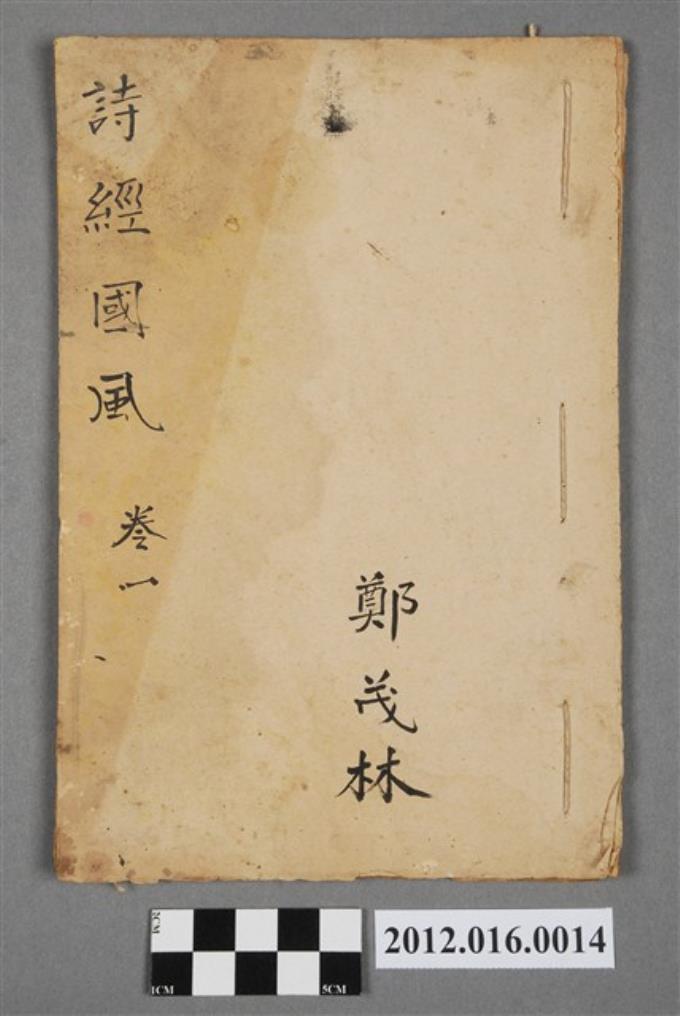 詩經國風 卷一
鄭茂林
2CM
1CM
5CM
2012.016.0014